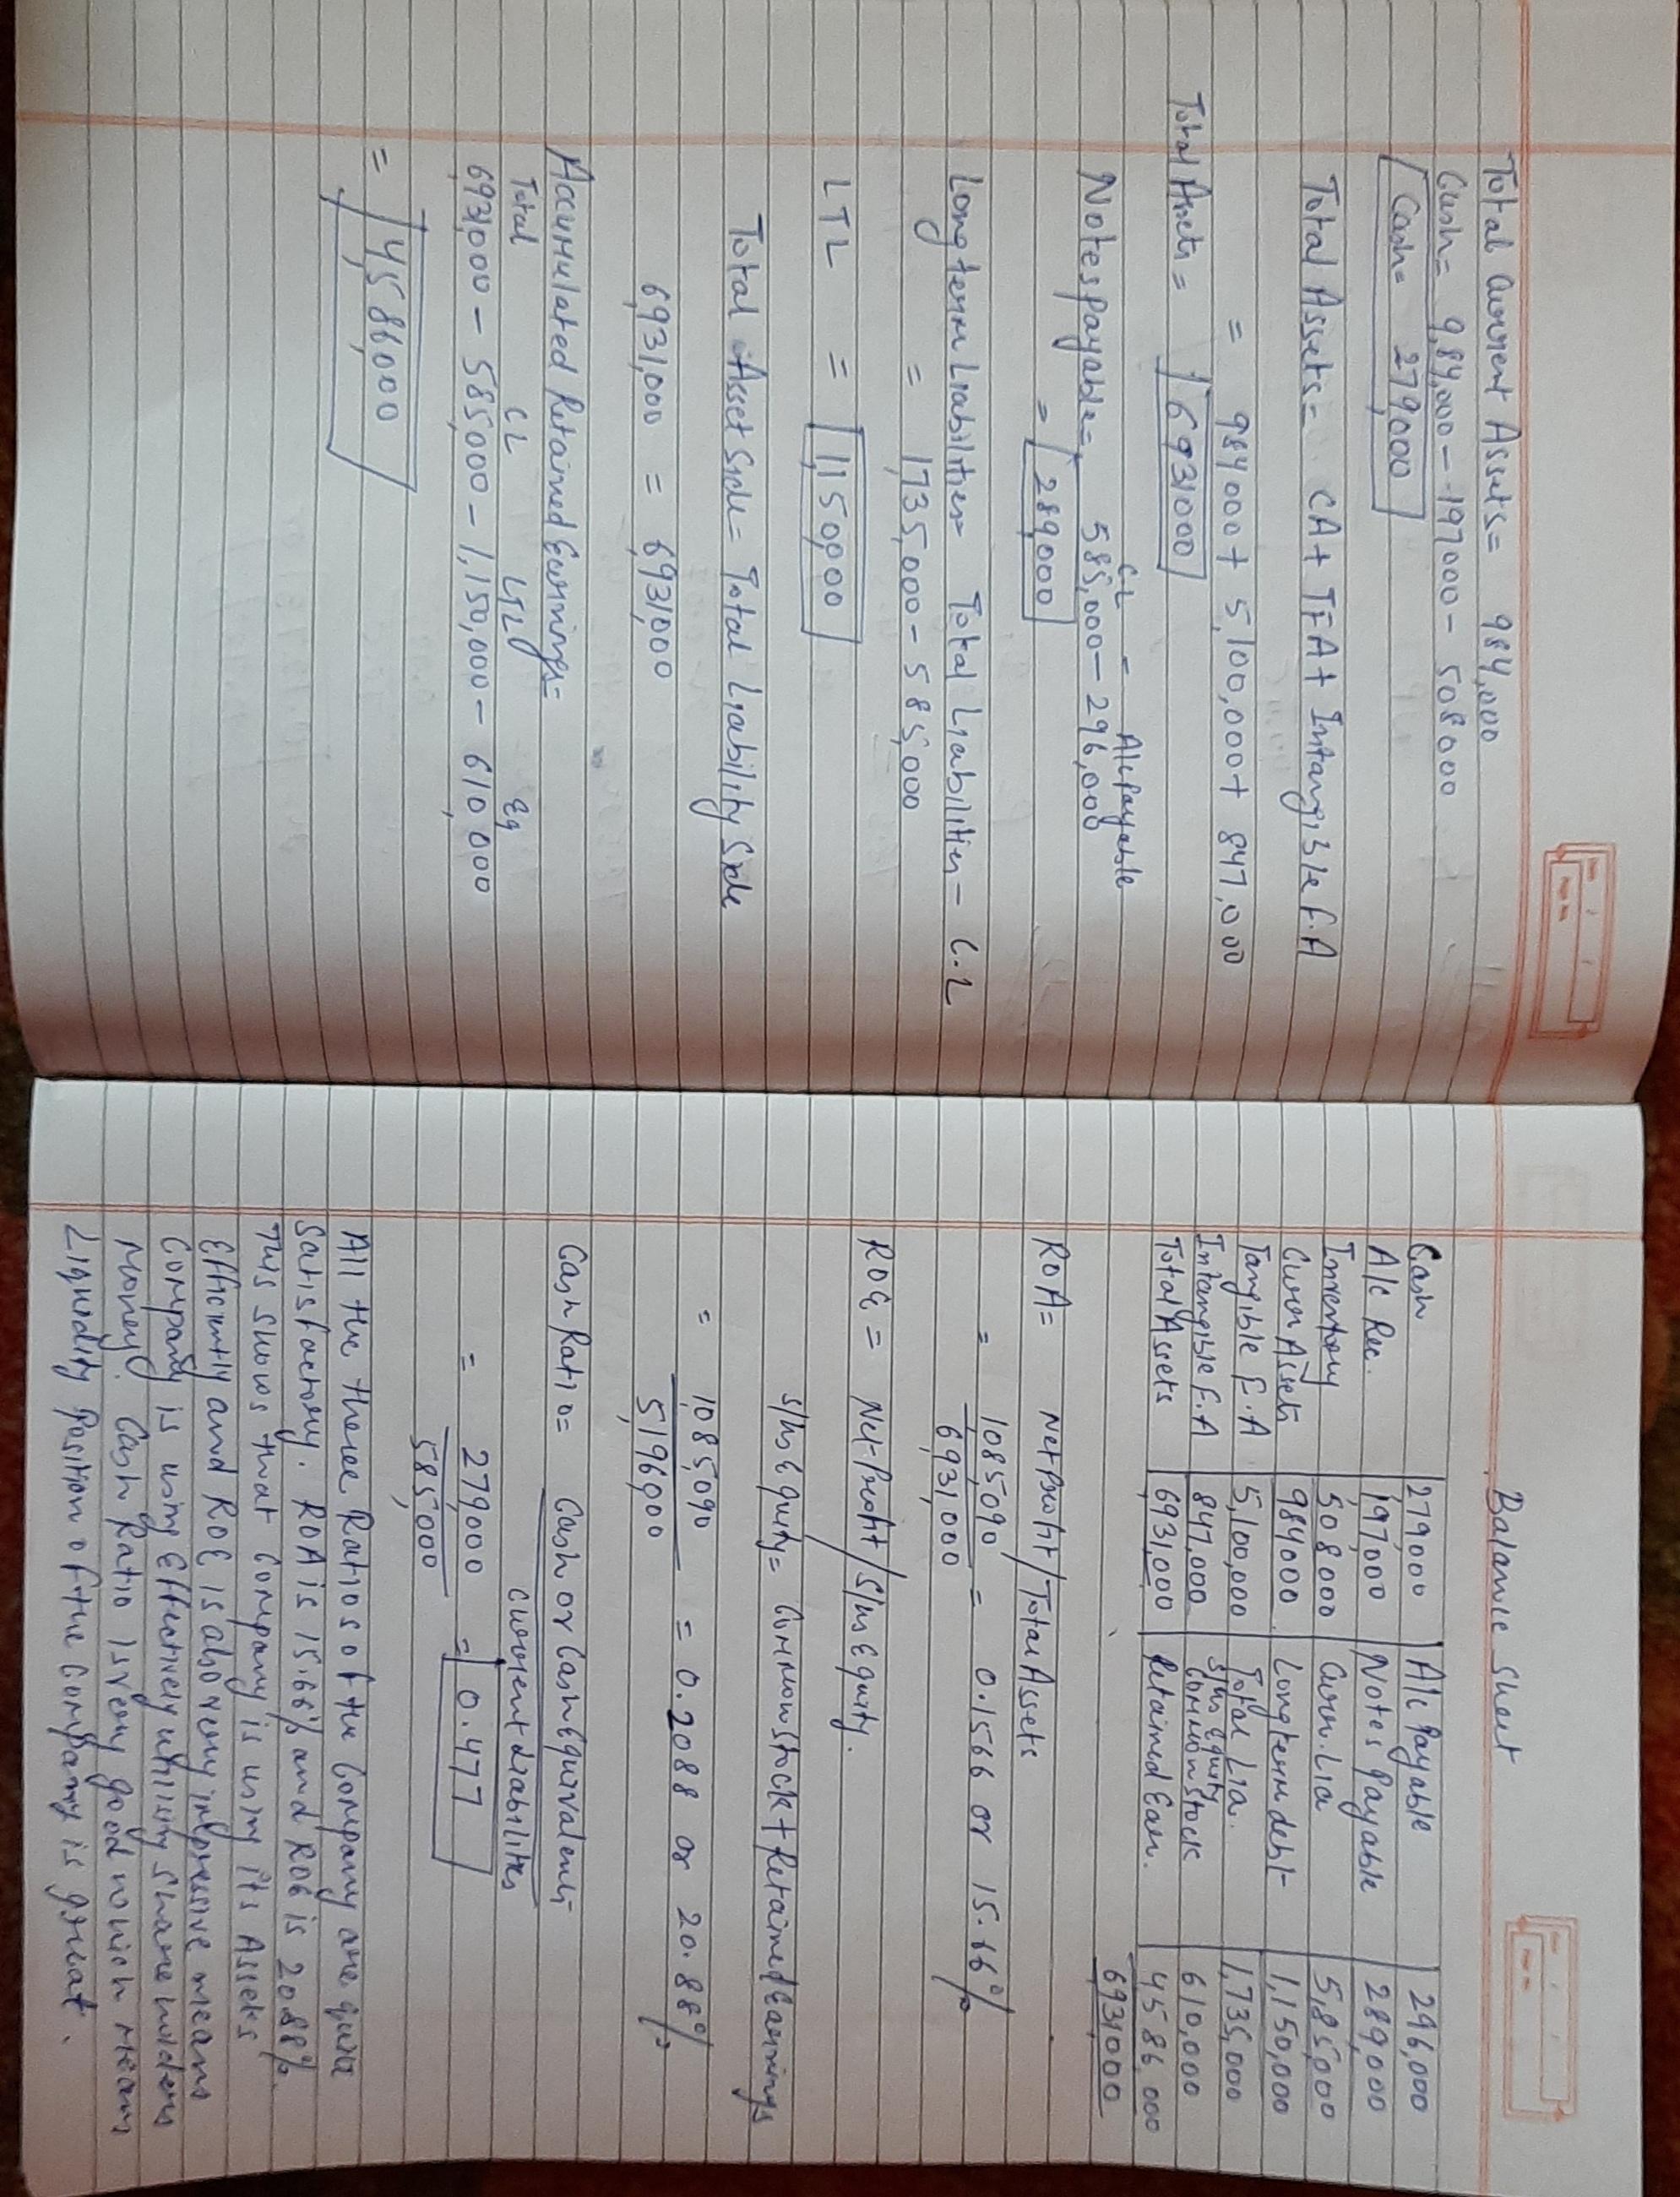 Total Current Assets = 984,000
Cash = 9,84,000 - 197000 - 508000
Cash = 279,000
Total Assets = CA + TFA + Intangible F.A
= 984000 + 5,100,000 + 847,000
Total Assets = 6931000
C.L = A/c Payable
Notes payable = 585,000 - 296,000
= 289,000
Long term Liabilities = Total Liabilities - C.L
= 1,735,000 - 585,000
LTL = 1,150,000
Total Asset Side = Total Liability Side
6,931,000 = 6,931,000
Accumulated Retained Earnings =
Total CL LTL Eq
6931,000 - 585,000 - 1,150,000 - 610,000
= 4,586,000
Balance Sheet
Cash 279,000 A/c Payable 296,000
A/c Rec. 197,000 Notes Payable 289,000
Inventory 508000 Curr. Lia 5,85,000
Curren Assets 984000 Long term debt 1,150,000
Tangible F.A 5,100,000 Total Lia. 1,735,000
S/hs Equity
Intangible F.A 847,000 Common Stock 610,000
Total Assets 6931,000 Retained Earn. 4586,000
6931000
ROA = Net Profit / Total Assets
= 1,085,090 / 6,931,000 = 0.1566 or 15.66%
ROE = Net-Profit / S/hs Equity.
S/hs Equity = Common Stock + Retained Earnings
= 1,085,090 / 5,196,000 = 0.2088 or 20.88%
Cash Ratio = Cash or Cash Equivalent
Current Liabilities
= 279,000 / 585,000 = 0.477
All the three Ratios of the Company are quite
Satisfactory. ROA is 15.66% and ROE is 20.88%.
This shows that Company is using its Assets
Efficiently and ROE is also very impressive means
Company is using Effectively utilising Shareholders
Money. Cash Ratio is very good which mean
Liquidity Position of the Company is great.